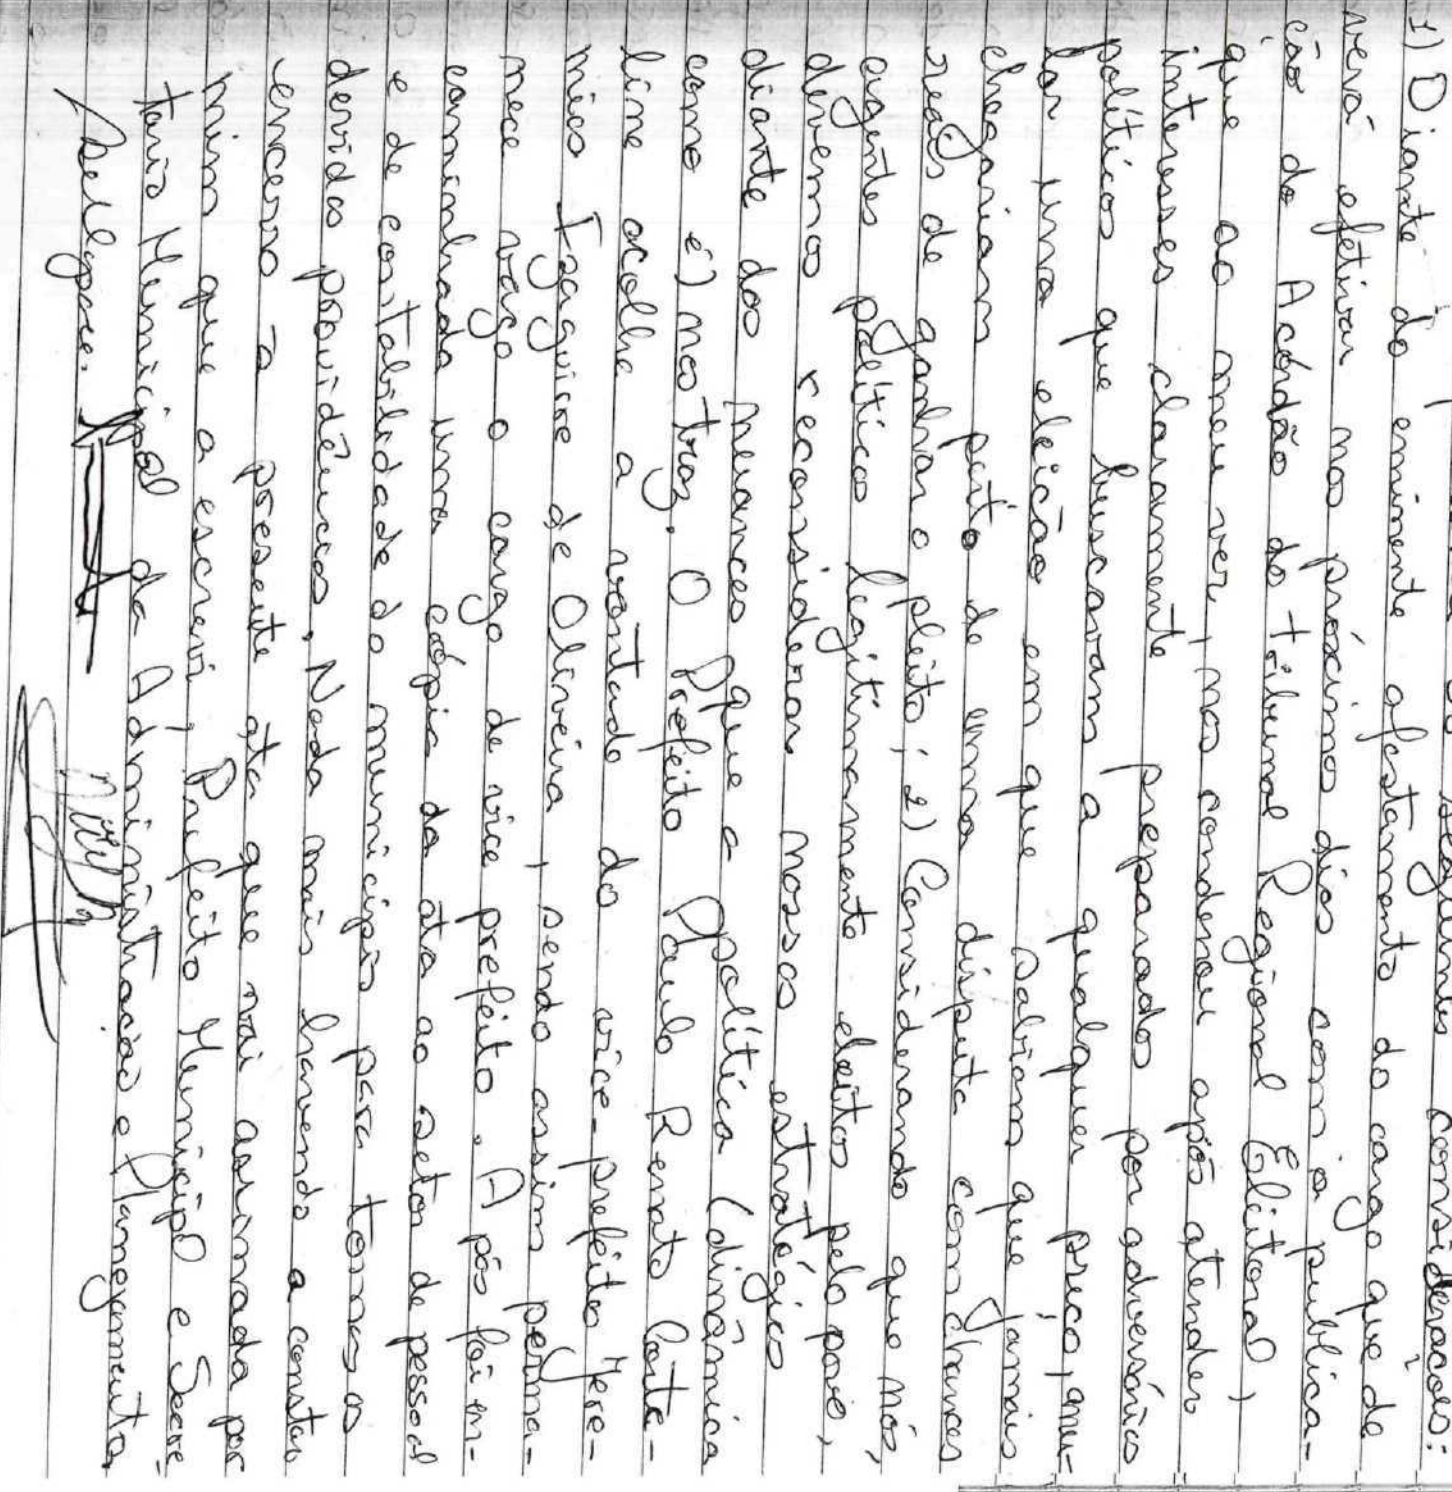 seguintes considerações:
1) Diante do eminente afastamento do cargo que de
verá efetivar nos próximos dias com a publica-
ção do Acórdão do Tribunal Regional Eleitoral,
que ao meu ver, nos condenou após atender
interesses claramente preparados por adversários
políticos que buscavam a qualquer preço, anu-
lar uma eleição em que sabiam que jamais
chegariam perto de uma disputa com chances
reais de ganhar o pleito; 2) Considerando que nós,
agentes político legitimamente eleito pelo povo,
devemos reconsiderar nossos estratégico
diante dos nuances que a política (dinâmica
como é) nos traz. O Prefeito Paulo Renato Corte-
line acolhe a vontade do vice-prefeito Jere-
mico Izaguire de Oliveira, sendo assim perma-
nece vago o cargo de vice prefeito. Após foi en-
caminhada uma cópia da ata ao setor de pessoal
e de contabilidade do município para tomar as
devidas providências. Nada mais havendo a constar
encerro a presente ata que vai assinada por
mim que a escrevi, Prefeito Municipal e Secre-
tário Municipal da Administração e Planejamento